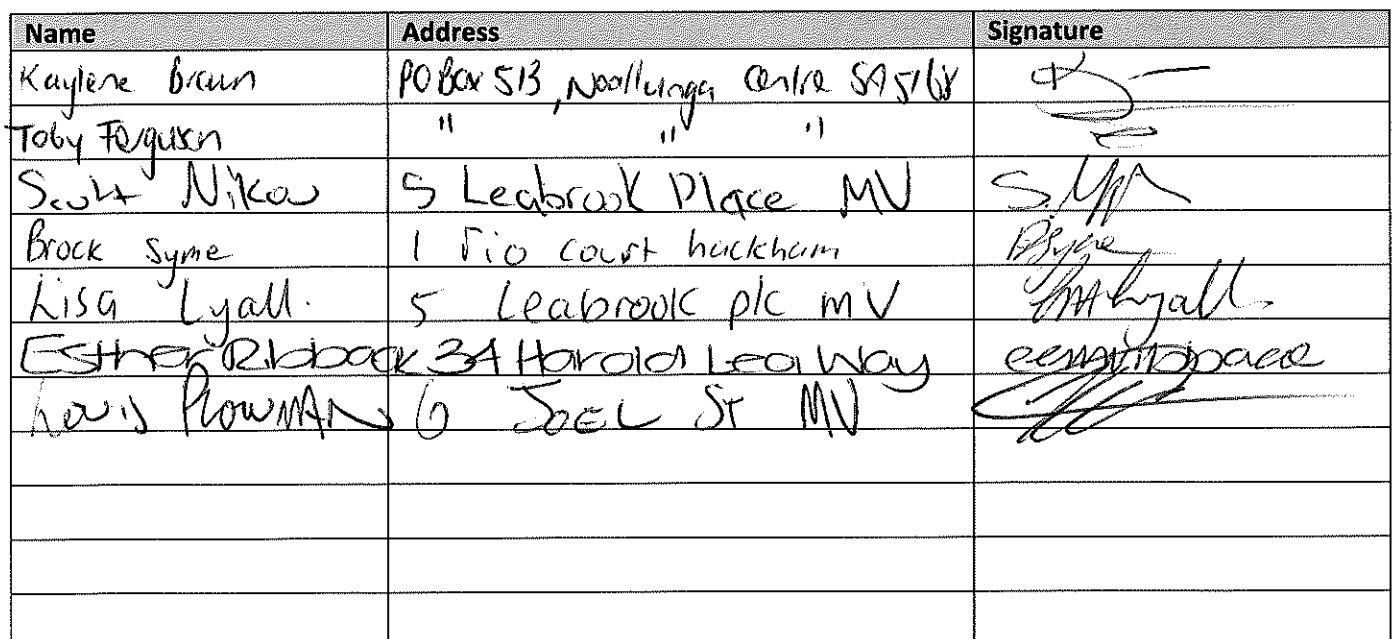 Name Address Signature
Kaylene Braun PO Box 513, Noarlunga Centre SA 5168
Toby Ferguson " " "
Scott Nikou 5 Leabrook Place MV
Brock Syme 1 rio court hackham BSyme
Lisa Lyall. 5 Leabrook plc MV Lyall.
Esther Ribback 34 Harold Leal Way
Louis PLOWMAN 6 JOEL ST MV